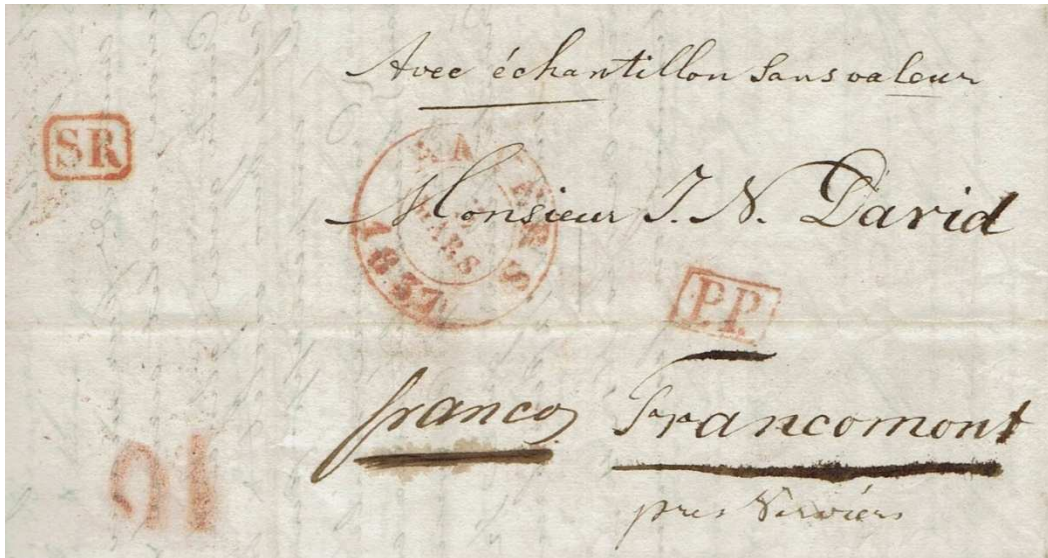 Avec échantillon Sans valeur
SR
ANVERS
MARS
1837
Monsieur J. N. David
P.P.
franco
Francomont
pres Verviers